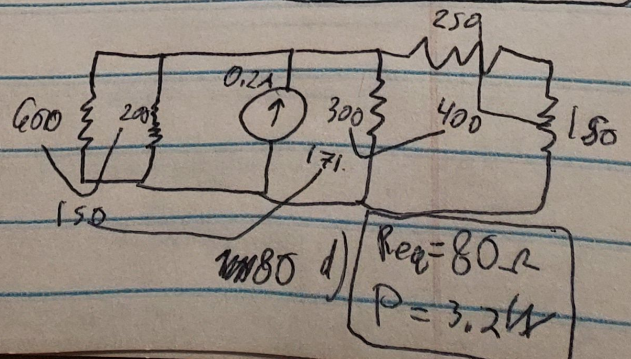 250
0.2A
600 200 300 400 150
171.
150
80 d) Req=80Ω
P=3.2W